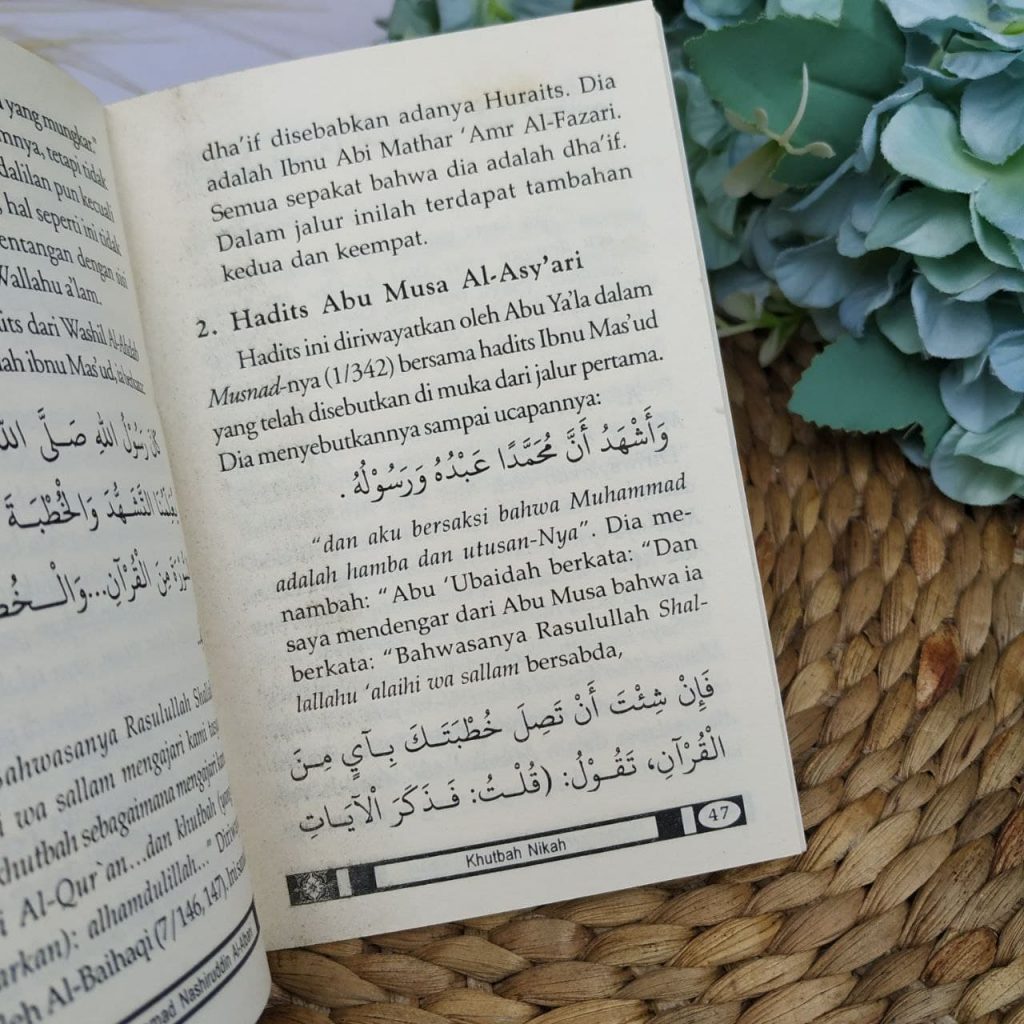 yang mungkar."
tetapi tidak
dalilan pun kecuali
hal seperti ini tidak
entangan dengan sisi
Wallahu a'lam.
dari Washil Al-Ahdab
ibnu Mas'ud,
كَانَ رَسُوْلُ اللهِ صَلَّى
التَّشَهُّدَ وَالْخُطْبَةَ
مِنَ الْقُرْآنِ...
Bahwasanya Rasulullah
wa sallam mengajari kami
khutbah sebagaimana mengajari
Al-Qur`an...dan khutbah
alhamdulillah..."
Al-Baihaqi (7/146, 147).
Nashiruddin
dha'if disebabkan adanya Huraits. Dia
adalah Ibnu Abi Mathar 'Amr Al-Fazari.
Semua sepakat bahwa dia adalah dha'if.
Dalam jalur inilah terdapat tambahan
kedua dan keempat.
2. Hadits Abu Musa Al-Asy'ari
Hadits ini diriwayatkan oleh Abu Ya'la dalam
Musnad-nya (1/342) bersama hadits Ibnu Mas'ud
yang telah disebutkan di muka dari jalur pertama.
Dia menyebutkannya sampai ucapannya:
وَأَشْهَدُ أَنَّ مُحَمَّدًا عَبْدُهُ وَرَسُوْلُهُ .
"dan aku bersaksi bahwa Muhammad
adalah hamba dan utusan-Nya". Dia me-
nambah: "Abu 'Ubaidah berkata: "Dan
saya mendengar dari Abu Musa bahwa ia
berkata: "Bahwasanya Rasulullah Shal-
lallahu 'alaihi wa sallam bersabda,
فَإِنْ شِئْتَ أَنْ تَصِلَ خُطْبَتَكَ بِآيٍ مِنَ
الْقُرْآنِ، تَقُوْلُ: (قُلْتُ: فَذَكَرَ الْآيَاتِ
Khutbah Nikah
47